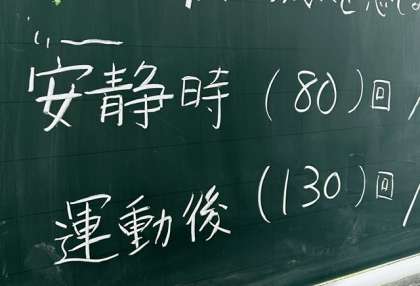 安静時 (80)回/
運動後 (130)回/